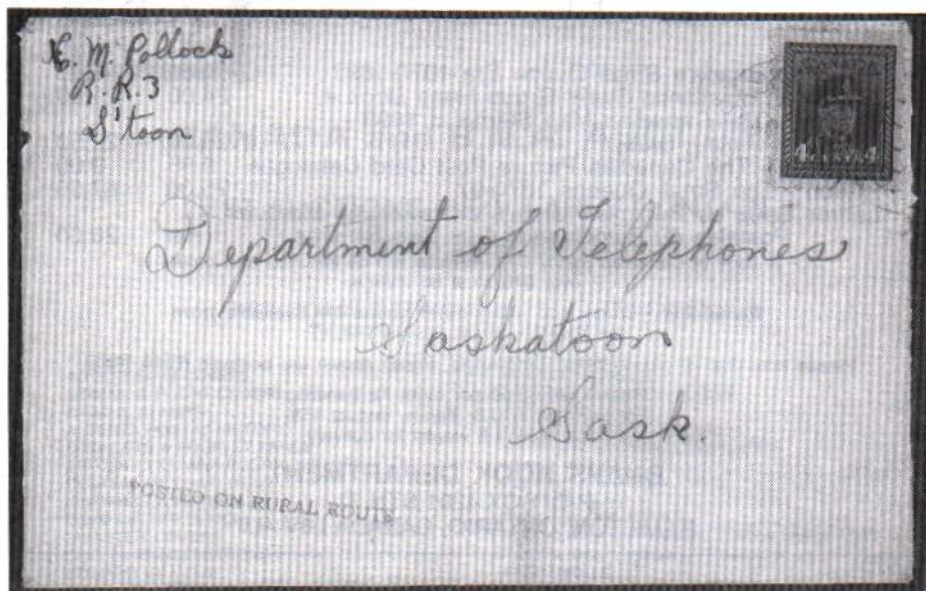 E. M. Pollock
R.R.3
S'toon
CANADA
4 CENTS 4
Department of Telephones
Saskatoon
Sask.
POSTED ON RURAL ROUTE